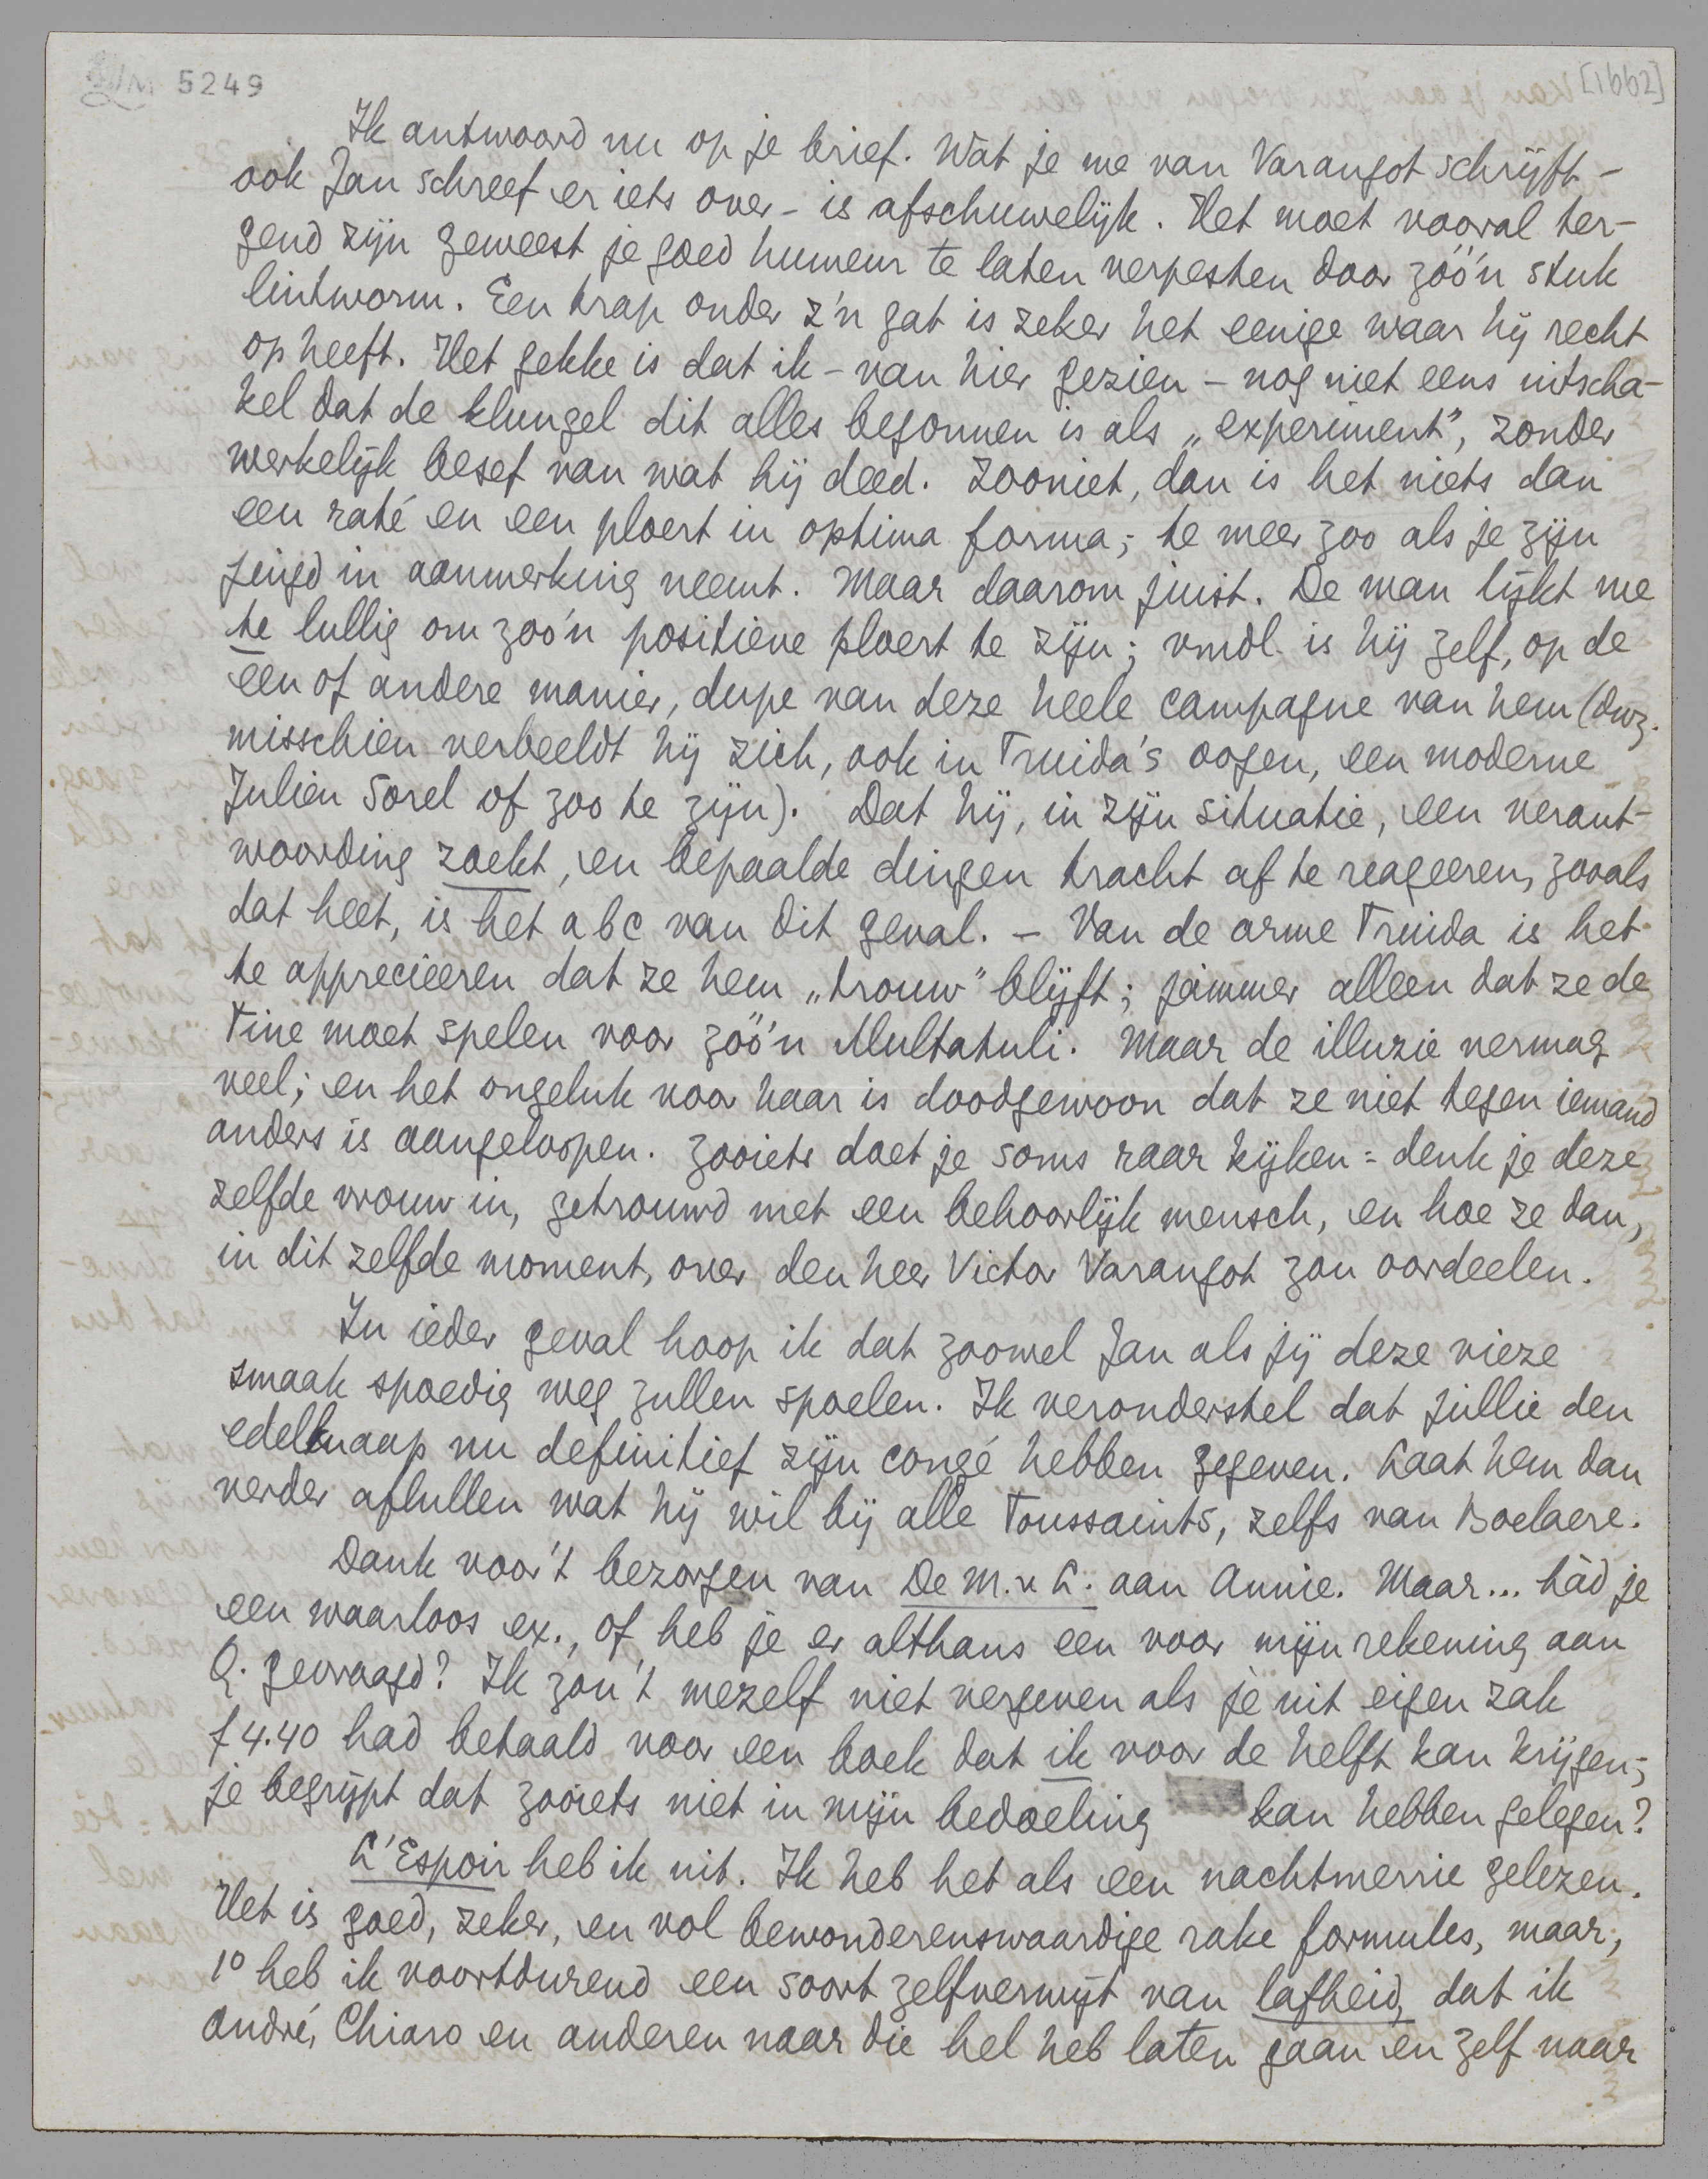 LM 5249
[1662]
Ik antwoord nu op je brief. Wat je me van Varangot schrijft –
ook Jan schreef er iets over – is afschuwelijk. Het moet vooral ter-
gend zijn geweest je goed humeur te laten verpesten door zóó'n stuk
lintworm. Een trap onder z'n gat is zeker het eenige waar hij recht
op heeft. Het gekke is dat ik – van hier gezien – nog niet eens uitscha-
kel dat de klungel dit alles begonnen is als „experiment”, zonder
werkelijk besef van wat hij deed. Zooniet, dan is het niets dan
een raté en een ploert in optima forma; te meer zoo als je zijn
jeugd in aanmerking neemt. Maar daarom juist. De man lijkt me
te lullig om zoo'n positieve ploert te zijn; vmdl. is hij zelf, op de
een of andere manier, dupe van deze heele campagne van hem (dwz.
misschien verbeeldt hij zich, ook in Truida's oogen, een moderne
Julien Sorel of zoo te zijn). Dat hij, in zijn situatie, een verant-
woording zoekt, en bepaalde dingen tracht af te reageeren, zooals
dat heet, is het abc van dit geval. – Van de arme Truida is het
te apprecieeren dat ze hem „trouw” blijft; jammer alleen dat ze de
Tine moet spelen voor zóó'n Multatuli. Maar de illuzie vermag
veel; en het ongeluk voor haar is doodgewoon dat ze niet tegen iemand
anders is aangeloopen. Zooiets doet je soms raar kijken: denk je deze
zelfde vrouw in, getrouwd met een behoorlijk mensch, en hoe ze dan,
in dit zelfde moment, over den heer Victor Varangot zou oordeelen.
In ieder geval hoop ik dat zoowel Jan als jij deze vieze
smaak spoedig weg zullen spoelen. Ik veronderstel dat jullie den
edelknaap nu definitief zijn congé hebben gegeven. Laat hem dan
verder aflullen wat hij wil bij alle Toussaints, zelfs van Boelaere.
Dank voor 't bezorgen van De M. v. L. aan Annie. Maar... hàd je
een waarloos ex., of heb je er althans een voor mijn rekening aan
Q. gevraagd? Ik zou 't mezelf niet vergeven als je uit eigen zak
f 4.40 had betaald voor een boek dat ik voor de helft kan krijgen;
je begrijpt dat zooiets niet in mijn bedoeling kan hebben gelegen?
L'Espoir heb ik uit. Ik heb het als een nachtmerrie gelezen.
Het is goed, zeker, en vol bewonderenswaardige rake formules, maar,
1° heb ik voortdurend een soort zelfverwijt van lafheid, dat ik
André, Chiaro en anderen naar die hel heb laten gaan en zelf naar